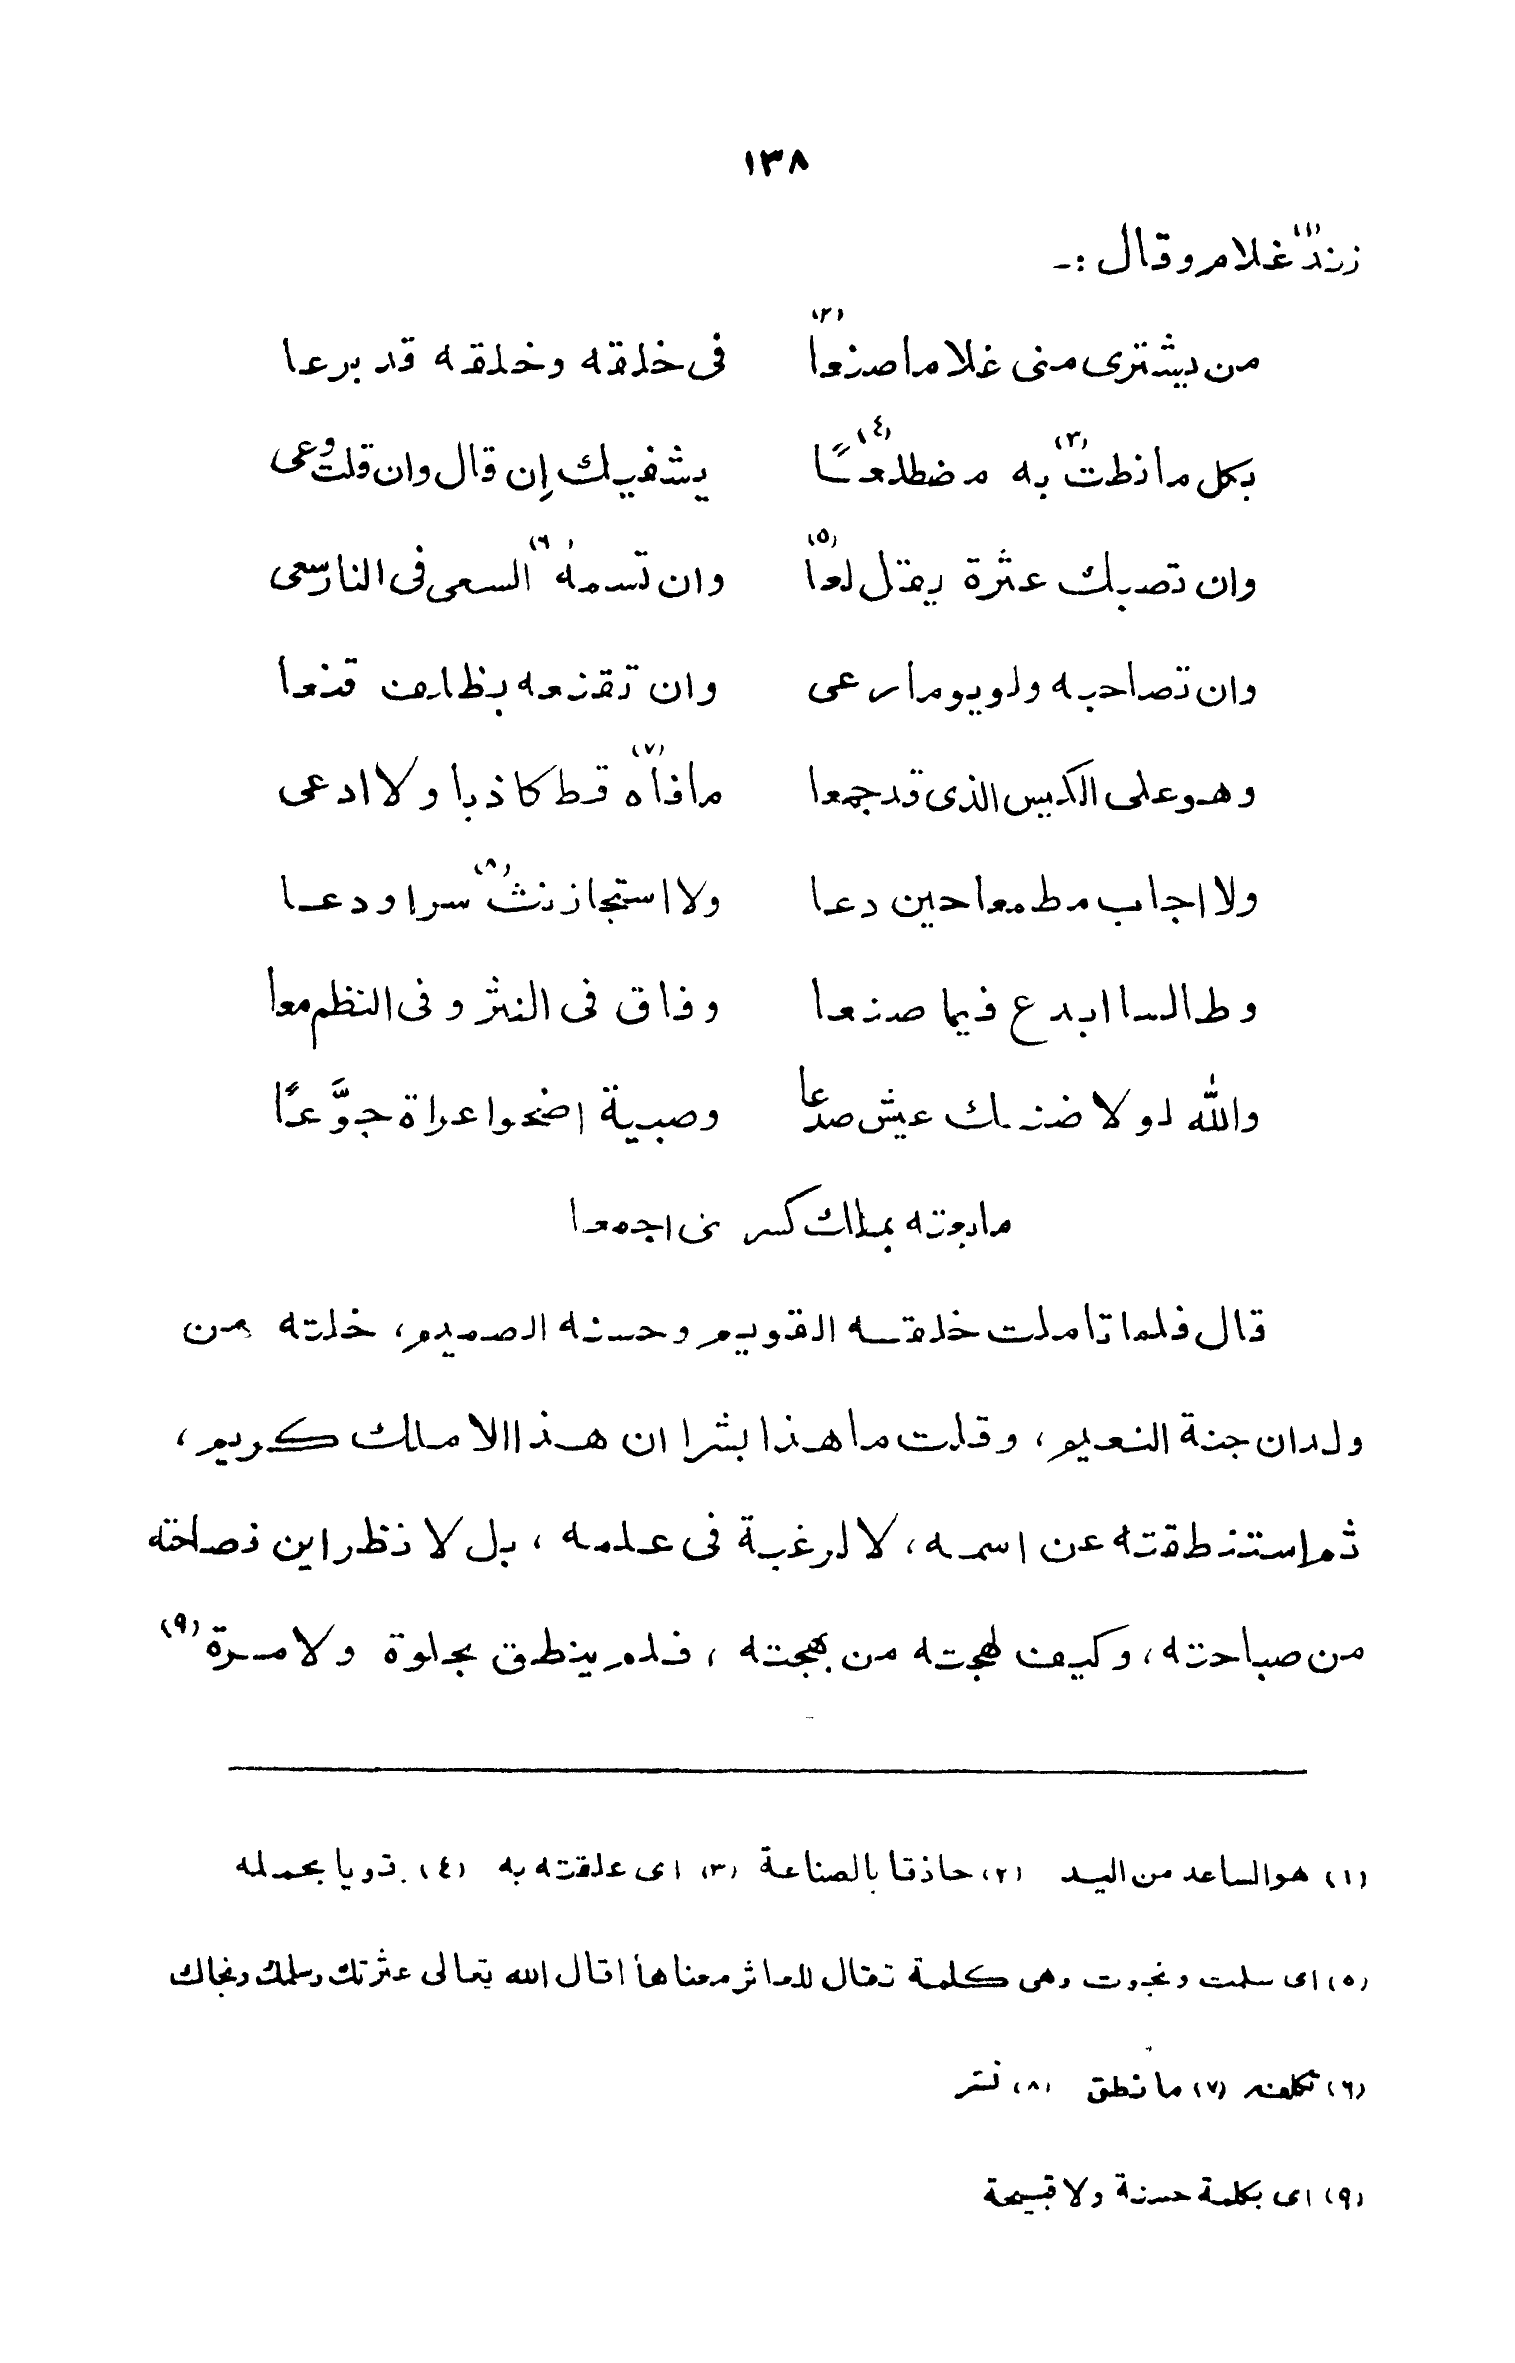 ١٣٨
زند(١) غلام وقال :ـ
من يشترى منى غلاما صنعا(٢) فى خلقه وخلقه قد برعا
بكل ما نطت(٣) به مضطلعًا(٤) يشفيك إن قال وان قلت وعى
وان تصبك عثرة يقل لعا(٥) وان تسمه(٦) السعى فى النار سعى
وان تصاحبه ولو يوما رعى وان تقنعه بظلف قنعا
وهو على الكيس الذى قد جمعا ما فاه(٧) قط كاذبا ولا ادعى
ولا اجاب مطمعا حين دعا ولا استجاز نث(٨) سرا ودعا
وطالما ابدع فيما صنعا وفاق فى النثر وفى النظم معا
والله لولا ضنك عيش صدعا وصبية اضحوا عراة جوَّعًا
ما بعته بملك كسرى اجمعا
قال فلما تأملت خلقه القويم وحسنه الصميم، خلته من
ولدان جنة النعيم، وقلت ما هذا بشرا ان هذا الا ملك كريم،
ثم إستنطقته عن اسمه، لا لرغبة فى علمه، بل لا نظر اين فصاحته
من صباحته، وكيف لهجته من بهجته، فلم ينطق بحلوة ولا مرة(٩)
(١) هو الساعد من اليد (٢) حاذقا بالصناعة (٣) اى علقته به (٤) قويا بحمله
(٥) اى سلمت ونجوت وهى كلمة تقال للعاثر معناها اقال الله تعالى عثرتك وسلمك ونجاك
(٦) تكلفه (٧) ما نطق (٨) نشر
(٩) اى بكلمة حسنة ولا قبيحة